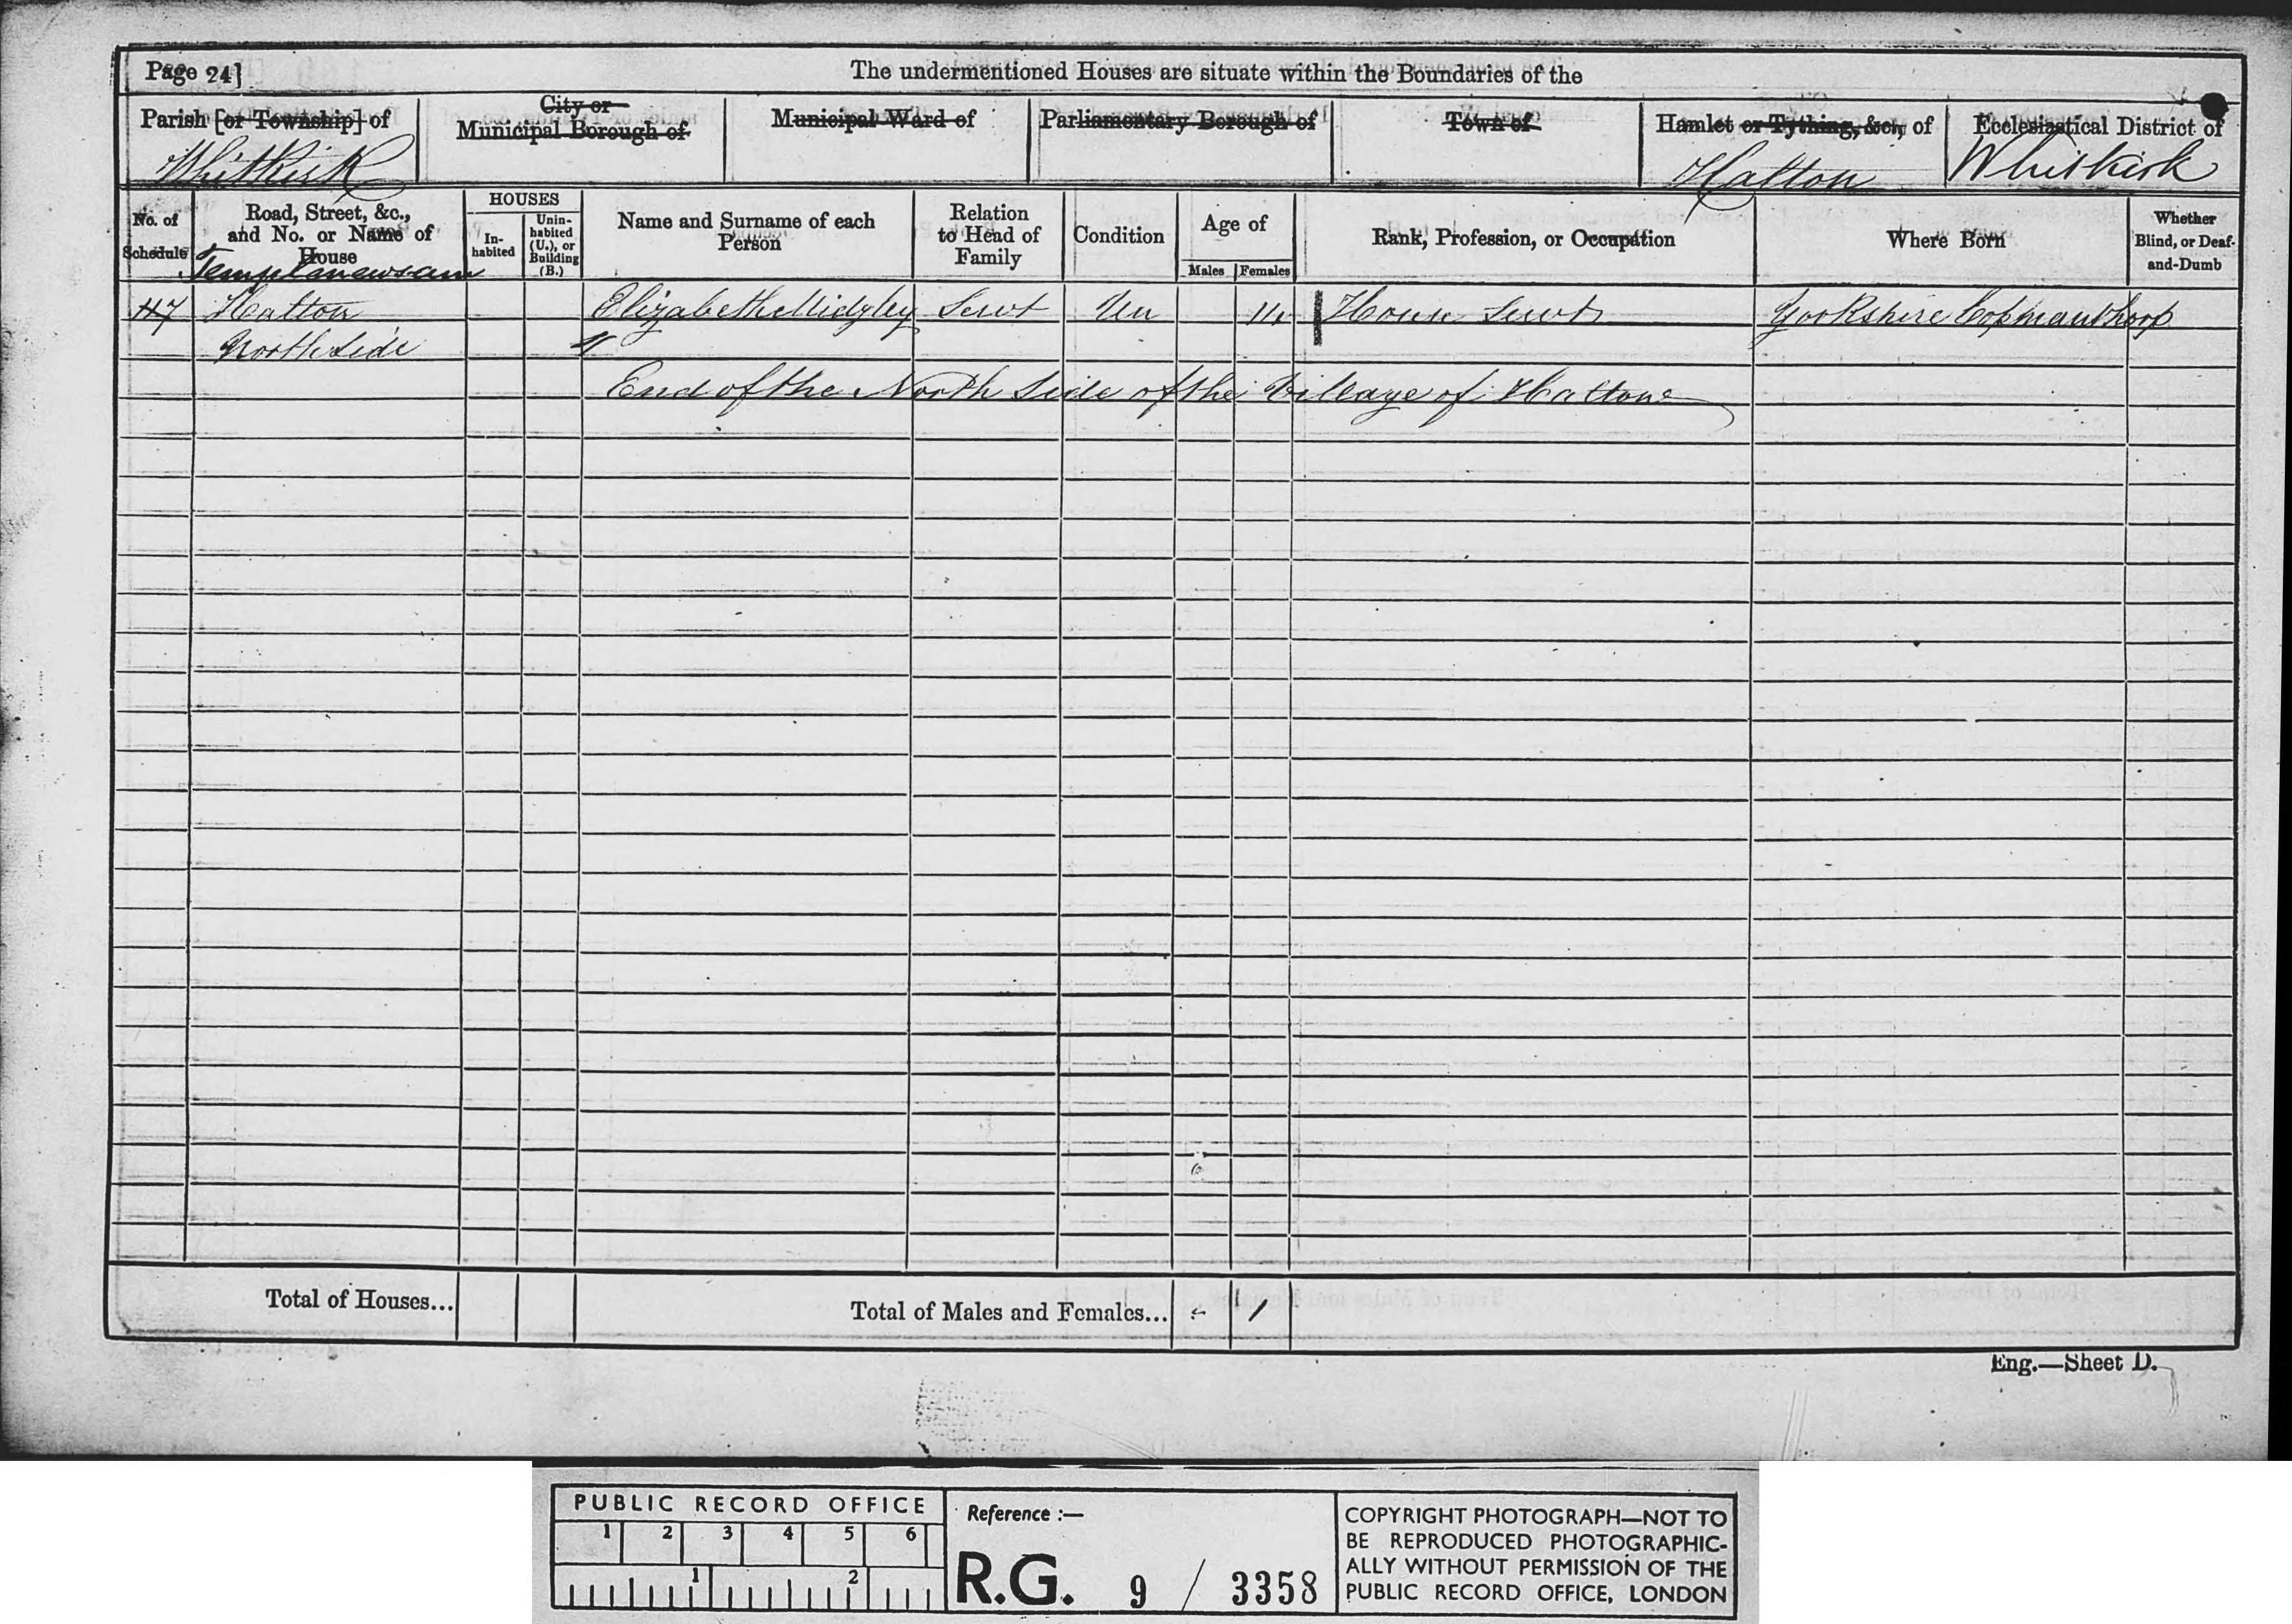 Page 24]
The undermentioned Houses are situate within the Boundaries of the
Parish [or Township] of
Whitkirk
City or
Municipal Borough of
Municipal Ward of
Parliamentary Borough of
Town of
Hamlet or Tything, &c., of
Halton
Ecclesiastical District of
Whitkirk
No. of Schedule
Road, Street, &c., and No. or Name of House
HOUSES
In-habited
Unin-habited (U.), or Building (B.)
Name and Surname of each Person
Relation to Head of Family
Condition
Age of
Males
Females
Rank, Profession, or Occupation
Where Born
Whether Blind, or Deaf-and-Dumb
Templenewsam
117 Halton Elizabeth Midgley Servt Un 14 House Servt Yorkshire Copmanthorp
North Side
End of the North Side of the Village of Halton
Total of Houses...
Total of Males and Females... - 1
Eng.—Sheet D.
PUBLIC RECORD OFFICE
1 2 3 4 5 6
1 2
Reference :—
R.G. 9 / 3358
COPYRIGHT PHOTOGRAPH—NOT TO
BE REPRODUCED PHOTOGRAPHIC-
ALLY WITHOUT PERMISSION OF THE
PUBLIC RECORD OFFICE, LONDON